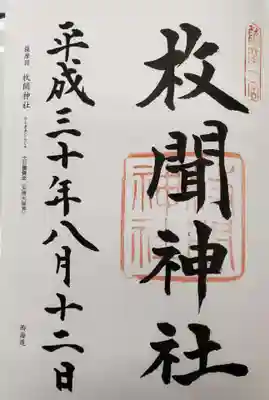 枚聞神社
平成三十年八月十二日
薩摩國 枚聞神社
西海道